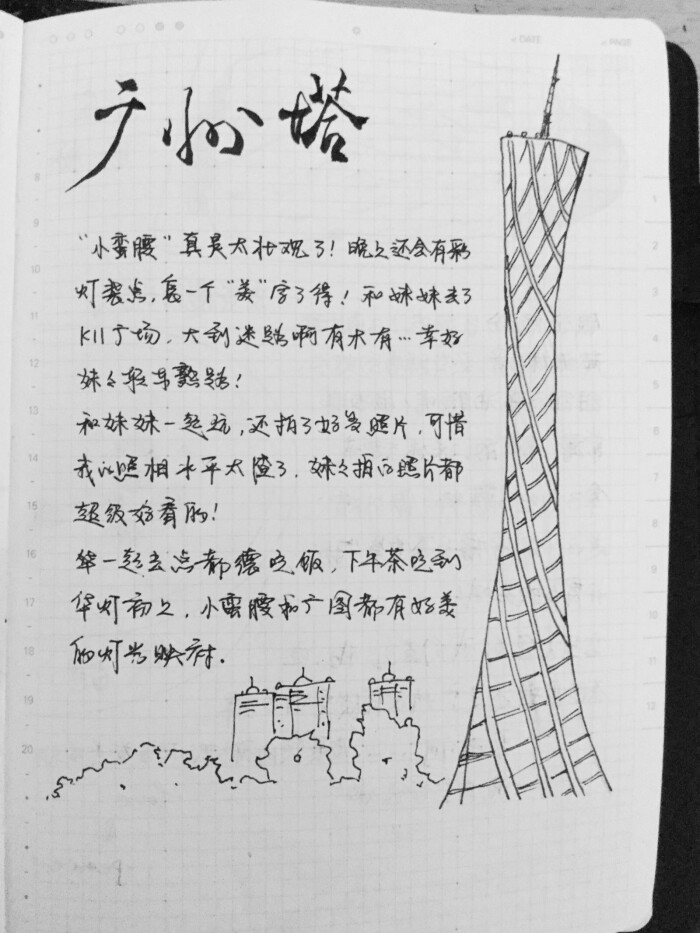 广州塔
"小蛮腰"真是太壮观了！晚上还会有彩
灯装点，怎一个"美"字了得！和妹妹去了
K11广场，大到迷路啊有木有…幸好
妹々轻车熟路！
和妹妹一起玩，还拍了好多照片，可惜
我的照相水平太渣了，妹々拍的照片都
超级好看的！
一起去点都德吃饭，下午茶吃到
华灯初上，小蛮腰和广图都有好美
的灯光映衬．
8
9
10
11
12
13
14
15
16
17
18
19
20